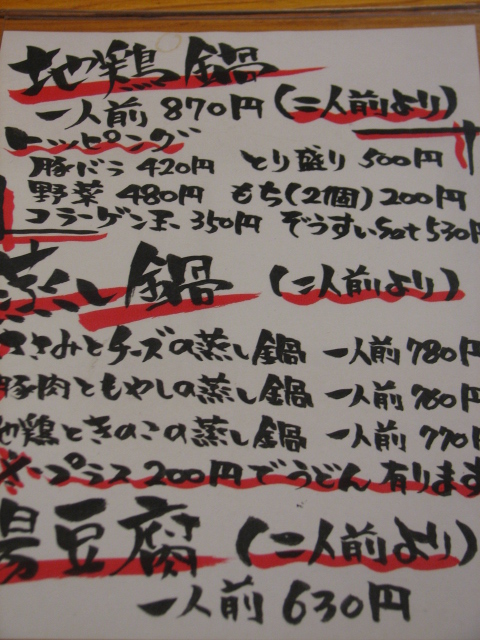 地鶏鍋
一人前 870円 (二人前より)
トッピング
豚バラ 420円 とり盛り 500円
野菜 480円 もち(2個) 200円
コラーゲン玉 350円 ぞうすいset 530円
蒸し鍋 (二人前より)
ささみとチーズの蒸し鍋 一人前 780円
豚肉ともやしの蒸し鍋 一人前 760円
地鶏ときのこの蒸し鍋 一人前 770円
※プラス200円でうどん有ります
湯豆腐 (二人前より)
一人前 630円